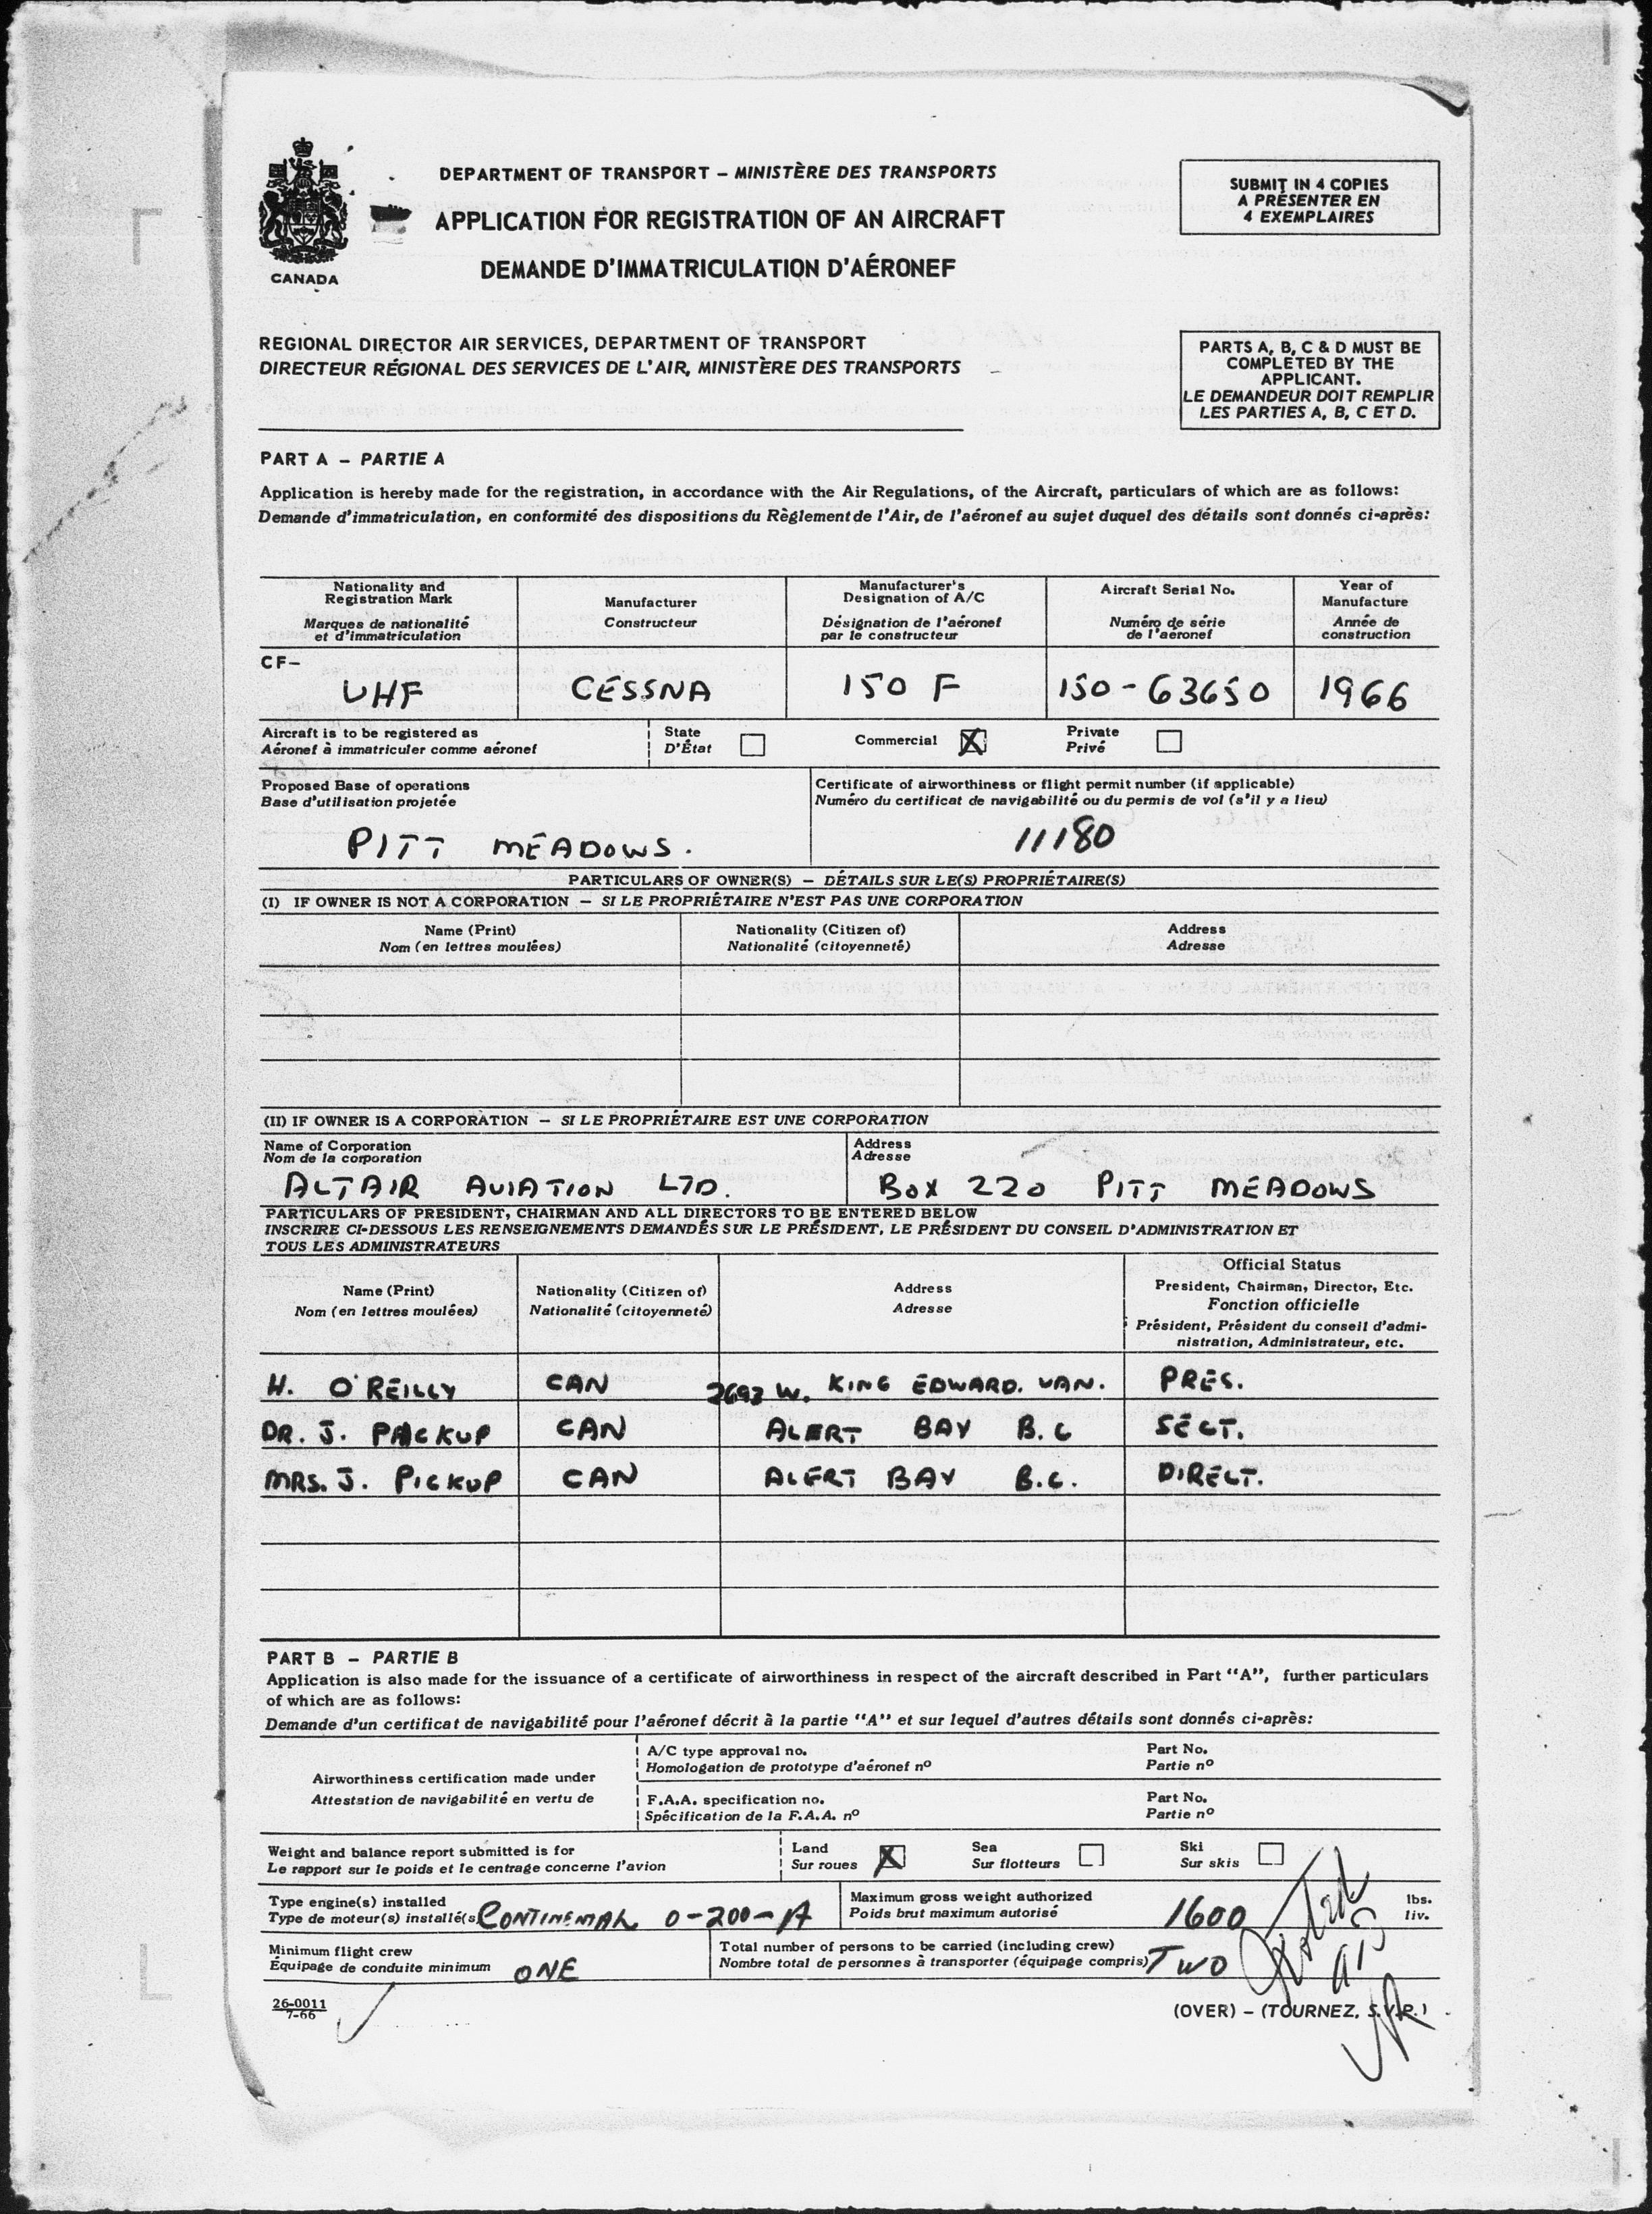 DEPARTMENT OF TRANSPORT – MINISTÈRE DES TRANSPORTS
APPLICATION FOR REGISTRATION OF AN AIRCRAFT
DEMANDE D'IMMATRICULATION D'AÉRONEF
CANADA
SUBMIT IN 4 COPIES
A PRÉSENTER EN
4 EXEMPLAIRES
REGIONAL DIRECTOR AIR SERVICES, DEPARTMENT OF TRANSPORT
DIRECTEUR RÉGIONAL DES SERVICES DE L'AIR, MINISTÈRE DES TRANSPORTS
PARTS A, B, C & D MUST BE
COMPLETED BY THE
APPLICANT.
LE DEMANDEUR DOIT REMPLIR
LES PARTIES A, B, C ET D.
PART A – PARTIE A
Application is hereby made for the registration, in accordance with the Air Regulations, of the Aircraft, particulars of which are as follows:
Demande d'immatriculation, en conformité des dispositions du Règlement de l'Air, de l'aéronef au sujet duquel des détails sont donnés ci-après:
Nationality and
Registration Mark
Marques de nationalité
et d'immatriculation
Manufacturer
Constructeur
Manufacturer's
Designation of A/C
Désignation de l'aéronef
par le constructeur
Aircraft Serial No.
Numéro de série
de l'aéronef
Year of
Manufacture
Année de
construction
CF–
UHF CESSNA 150 F 150-63650 1966
Aircraft is to be registered as
Aéronef à immatriculer comme aéronef
State
D'État
Commercial
Private
Privé
Proposed Base of operations
Base d'utilisation projetée
PITT MEADOWS.
Certificate of airworthiness or flight permit number (if applicable)
Numéro du certificat de navigabilité ou du permis de vol (s'il y a lieu)
11180
PARTICULARS OF OWNER(S) – DÉTAILS SUR LE(S) PROPRIÉTAIRE(S)
(I) IF OWNER IS NOT A CORPORATION – SI LE PROPRIÉTAIRE N'EST PAS UNE CORPORATION
Name (Print)
Nom (en lettres moulées)
Nationality (Citizen of)
Nationalité (citoyenneté)
Address
Adresse
(II) IF OWNER IS A CORPORATION – SI LE PROPRIÉTAIRE EST UNE CORPORATION
Name of Corporation
Nom de la corporation
ALTAIR AVIATION LTD.
Address
Adresse
BOX 220 PITT MEADOWS
PARTICULARS OF PRESIDENT, CHAIRMAN AND ALL DIRECTORS TO BE ENTERED BELOW
INSCRIRE CI-DESSOUS LES RENSEIGNEMENTS DEMANDÉS SUR LE PRÉSIDENT, LE PRÉSIDENT DU CONSEIL D'ADMINISTRATION ET
TOUS LES ADMINISTRATEURS
Name (Print)
Nom (en lettres moulées)
Nationality (Citizen of)
Nationalité (citoyenneté)
Address
Adresse
Official Status
President, Chairman, Director, Etc.
Fonction officielle
Président, Président du conseil d'admi-
nistration, Administrateur, etc.
H. O'REILLY CAN 2693 W. KING EDWARD. VAN. PRES.
DR. J. PICKUP CAN ALERT BAY B.C SECT.
MRS. J. PICKUP CAN ALERT BAY B.C. DIRECT.
PART B – PARTIE B
Application is also made for the issuance of a certificate of airworthiness in respect of the aircraft described in Part "A", further particulars
of which are as follows:
Demande d'un certificat de navigabilité pour l'aéronef décrit à la partie "A" et sur lequel d'autres détails sont donnés ci-après:
Airworthiness certification made under
Attestation de navigabilité en vertu de
A/C type approval no.
Homologation de prototype d'aéronef nº
Part No.
Partie nº
F.A.A. specification no.
Spécification de la F.A.A. nº
Part No.
Partie nº
Weight and balance report submitted is for
Le rapport sur le poids et le centrage concerne l'avion
Land
Sur roues
Sea
Sur flotteurs
Ski
Sur skis
Type engine(s) installed
Type de moteur(s) installé(s) CONTINENTAL O-200-A
Maximum gross weight authorized
Poids brut maximum autorisé
1600
lbs.
liv.
Minimum flight crew
Équipage de conduite minimum ONE
Total number of persons to be carried (including crew)
Nombre total de personnes à transporter (équipage compris) TWO
26-0011
7-66
(OVER) – (TOURNEZ, S.V.P.)